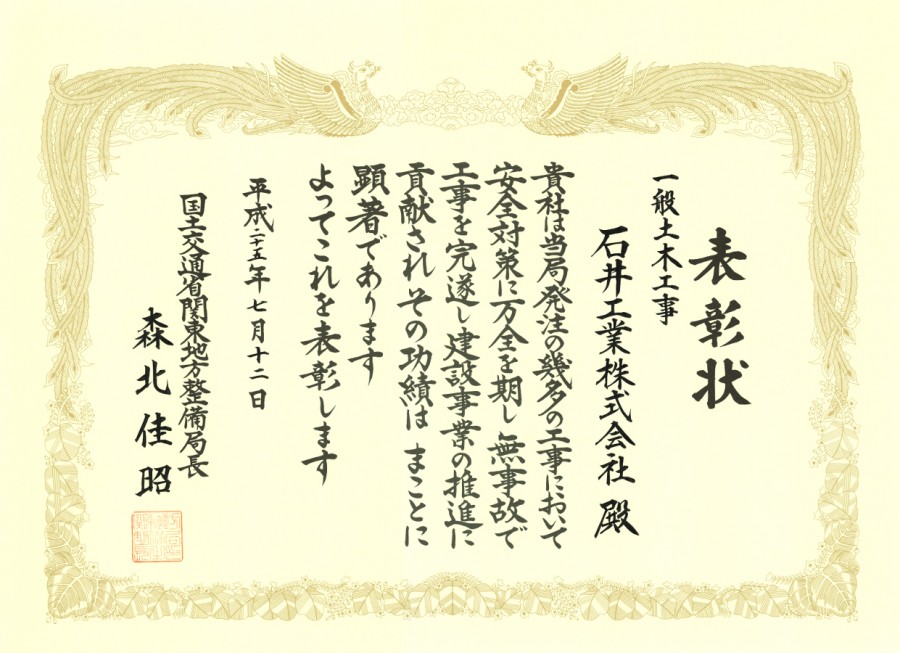 表彰状
一般土木工事
石井工業株式会社 殿
貴社は当局発注の幾多の工事において
安全対策に万全を期し 無事故で
工事を完遂し 建設事業の推進に
貢献され その功績は まことに
顕著であります
よってこれを表彰します
平成二十五年七月十二日
国土交通省関東地方整備局長
森北佳昭